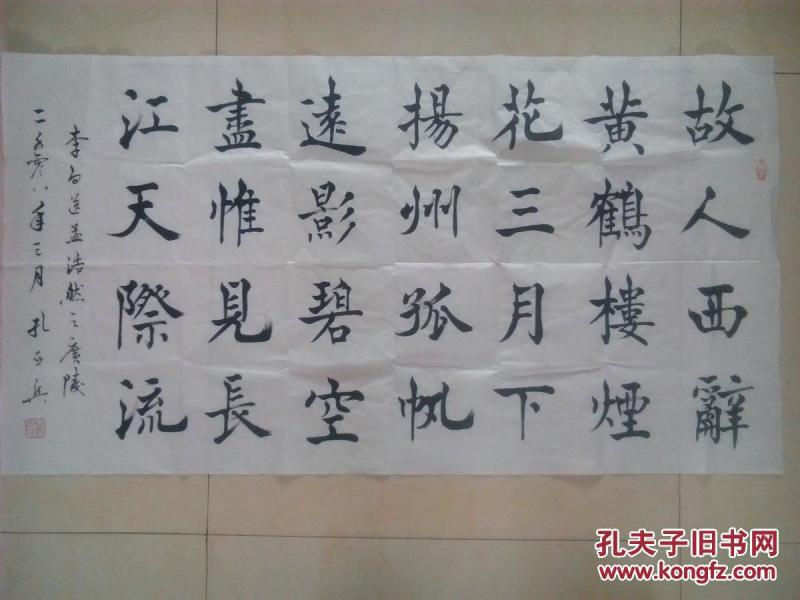 故人西辭
黄鶴樓煙
花三月下
揚州孤帆
遠影碧空
盡惟見長
江天際流
李白送孟浩然之廣陵
二零零八年三月 孔
孔夫子旧书网
www.kongfz.com